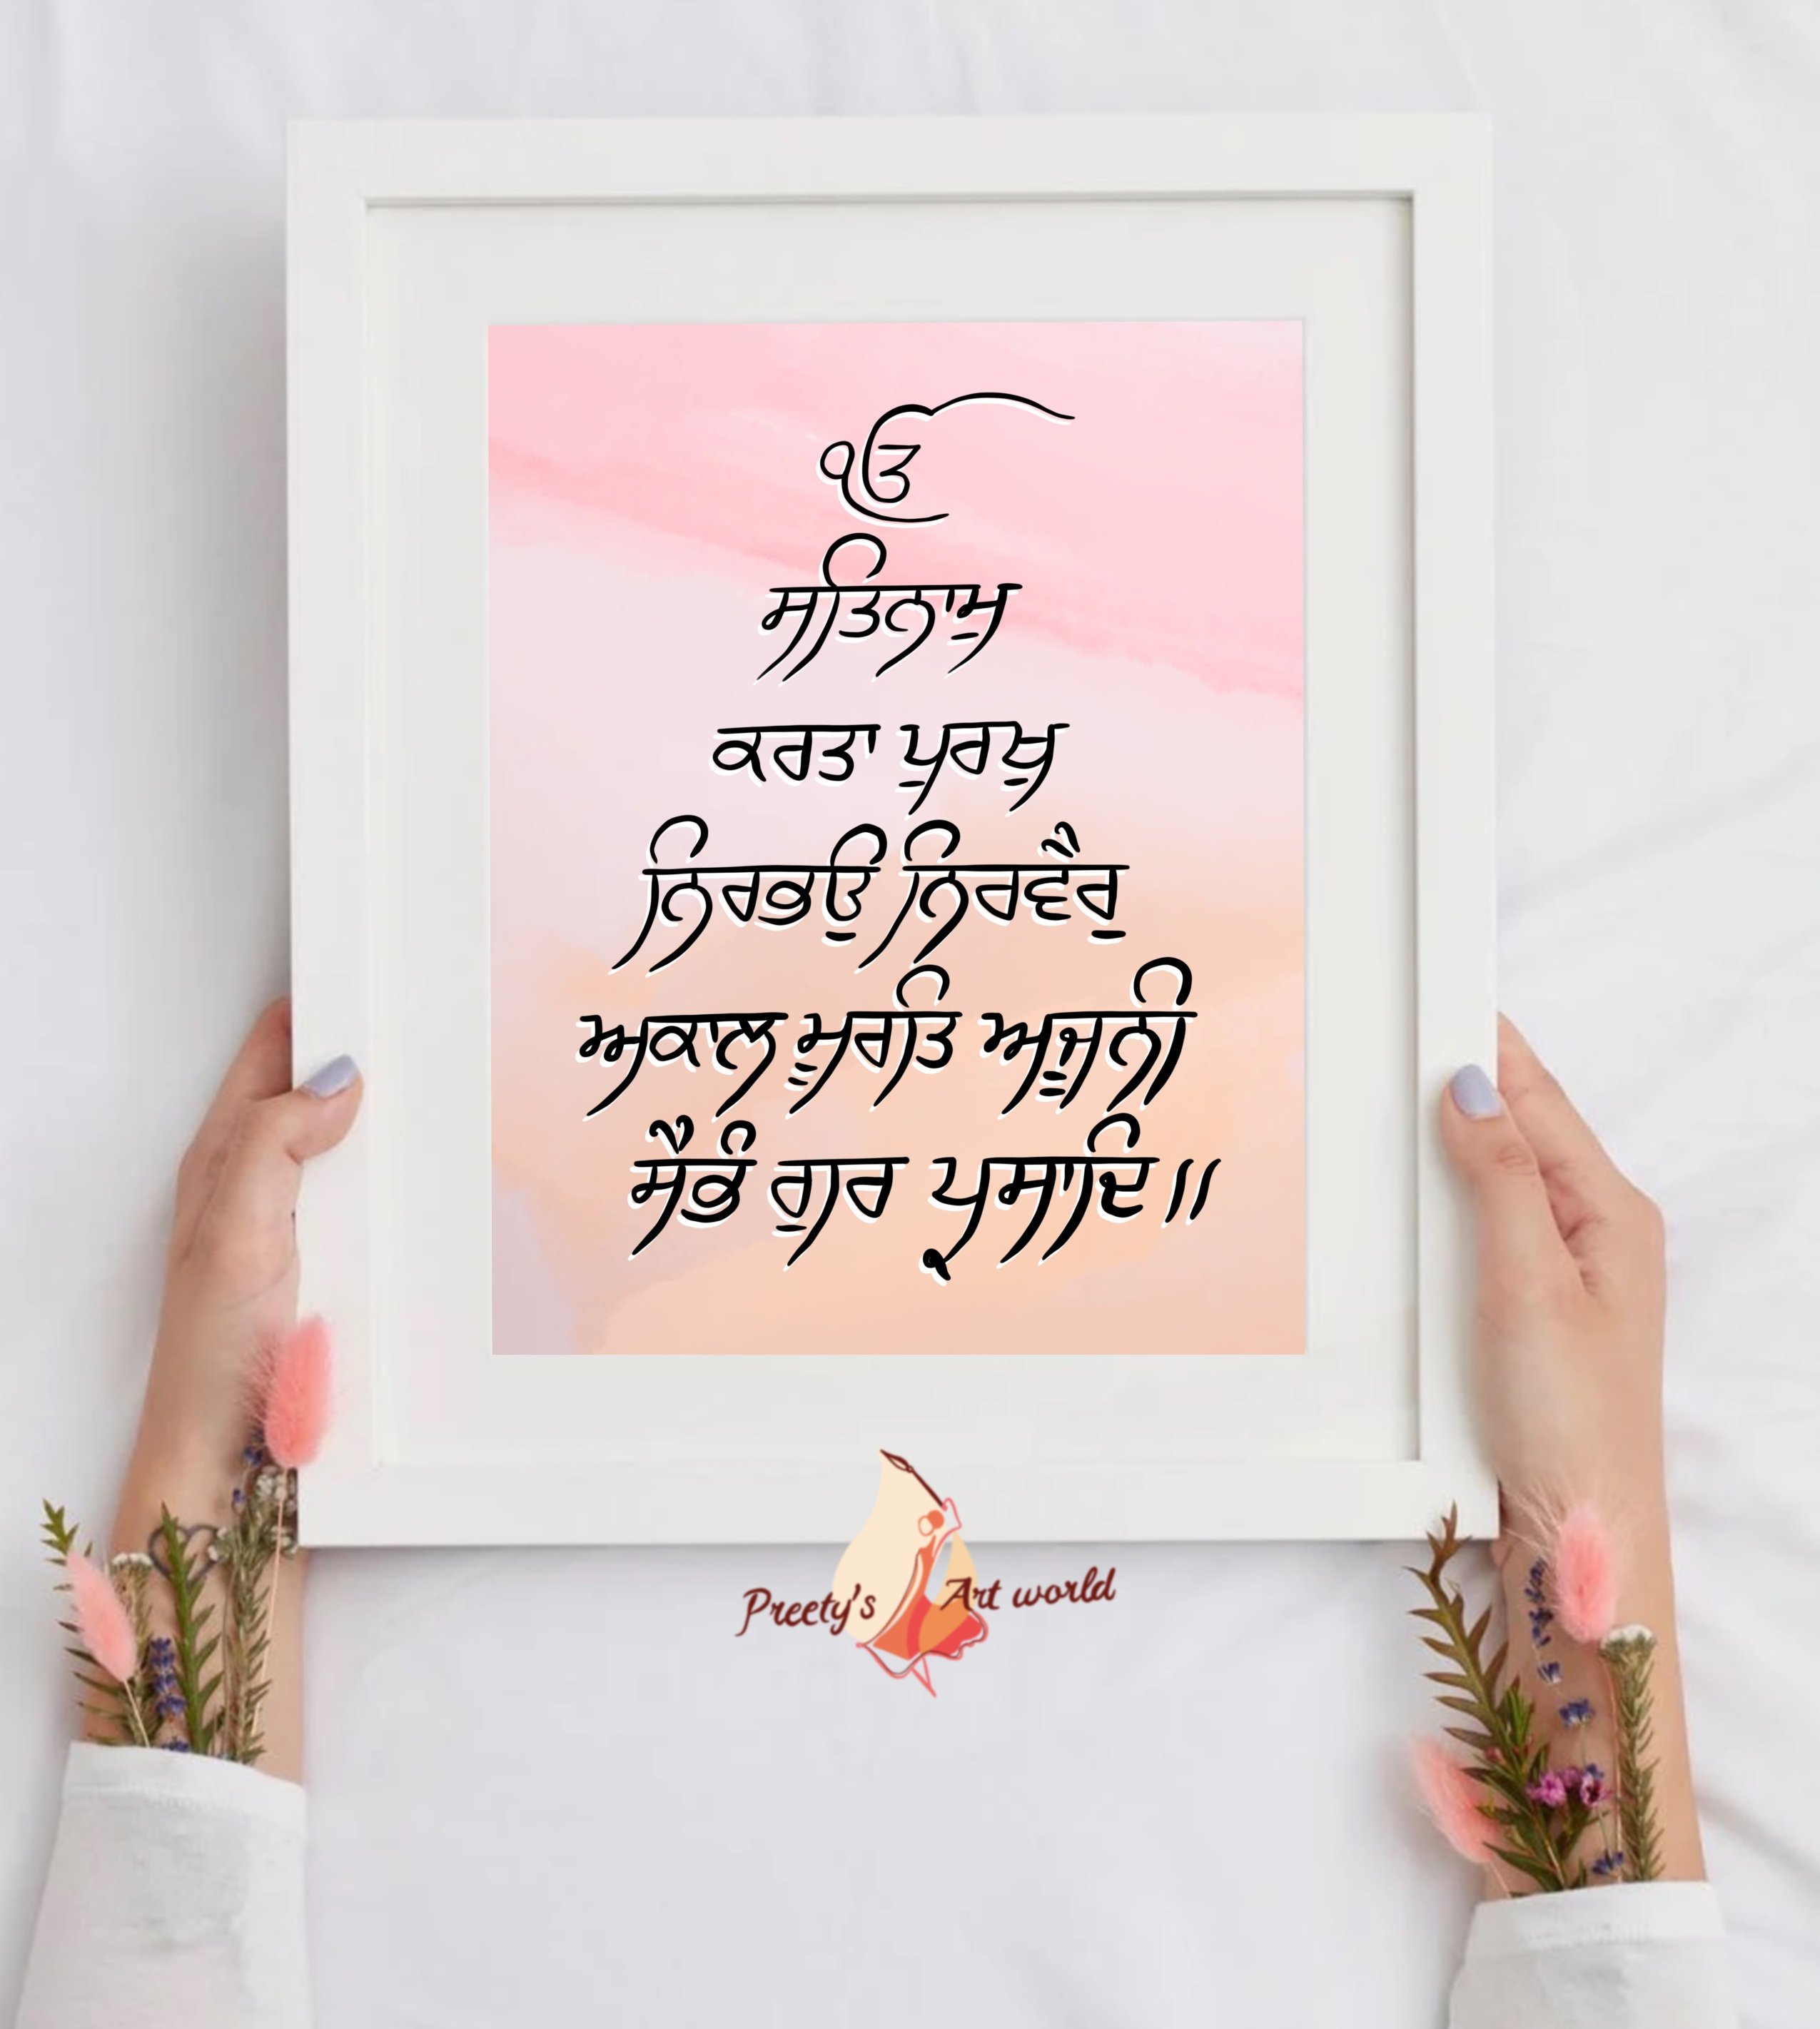 ੴ
ਸਤਿਨਾਮੁ
ਕਰਤਾ ਪੁਰਖੁ
ਨਿਰਭਉ ਨਿਰਵੈਰੁ
ਅਕਾਲ ਮੂਰਤਿ ਅਜੂਨੀ
ਸੈਭੰ ਗੁਰ ਪ੍ਰਸਾਦਿ॥
Preety's Art world